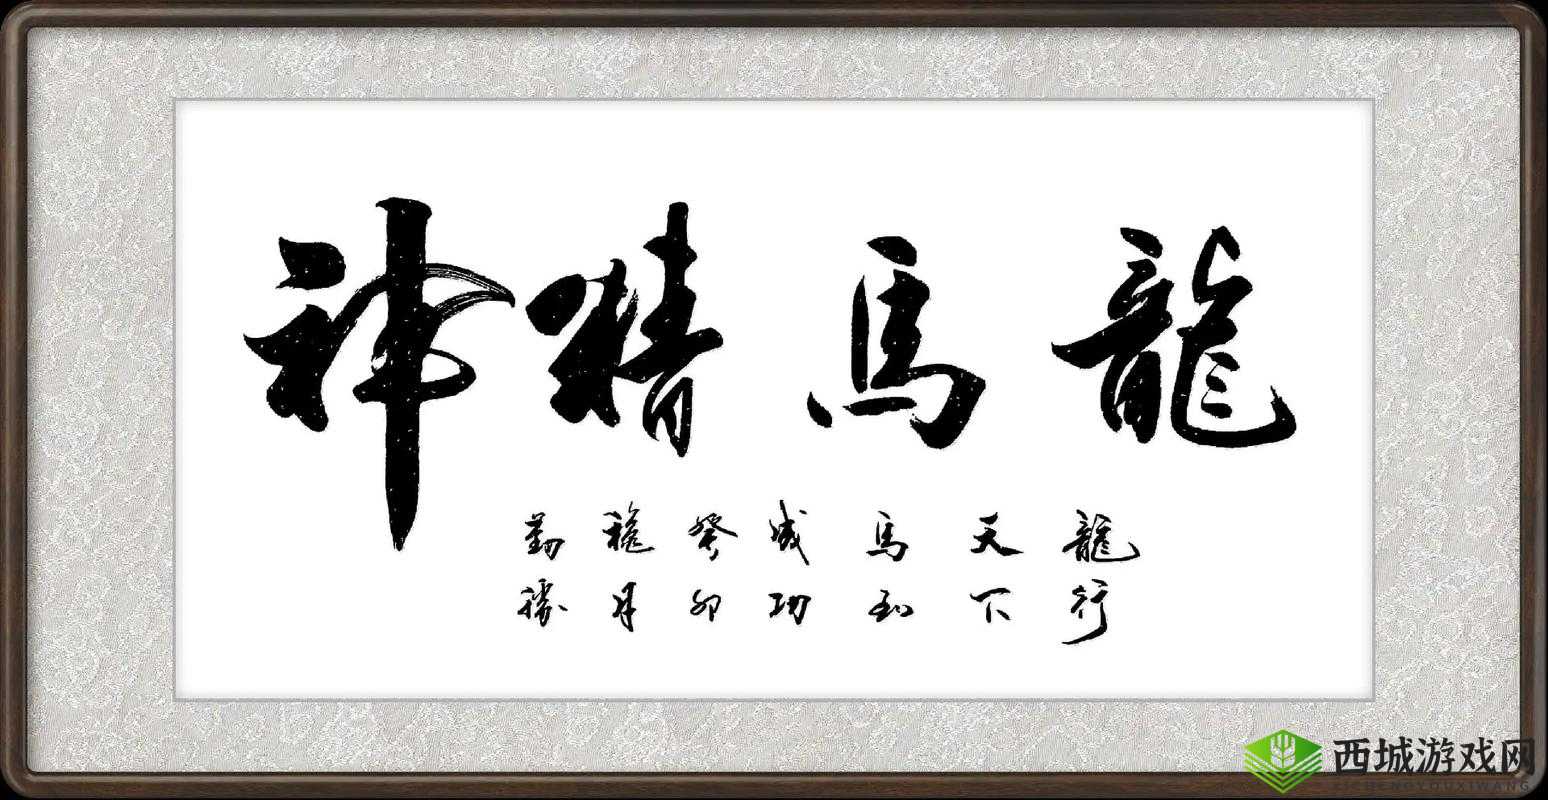 龍馬精神
龍行
天下
馬到
成功
癸卯
月
勤
西城游戏网
XICHENGYOUXIWANG